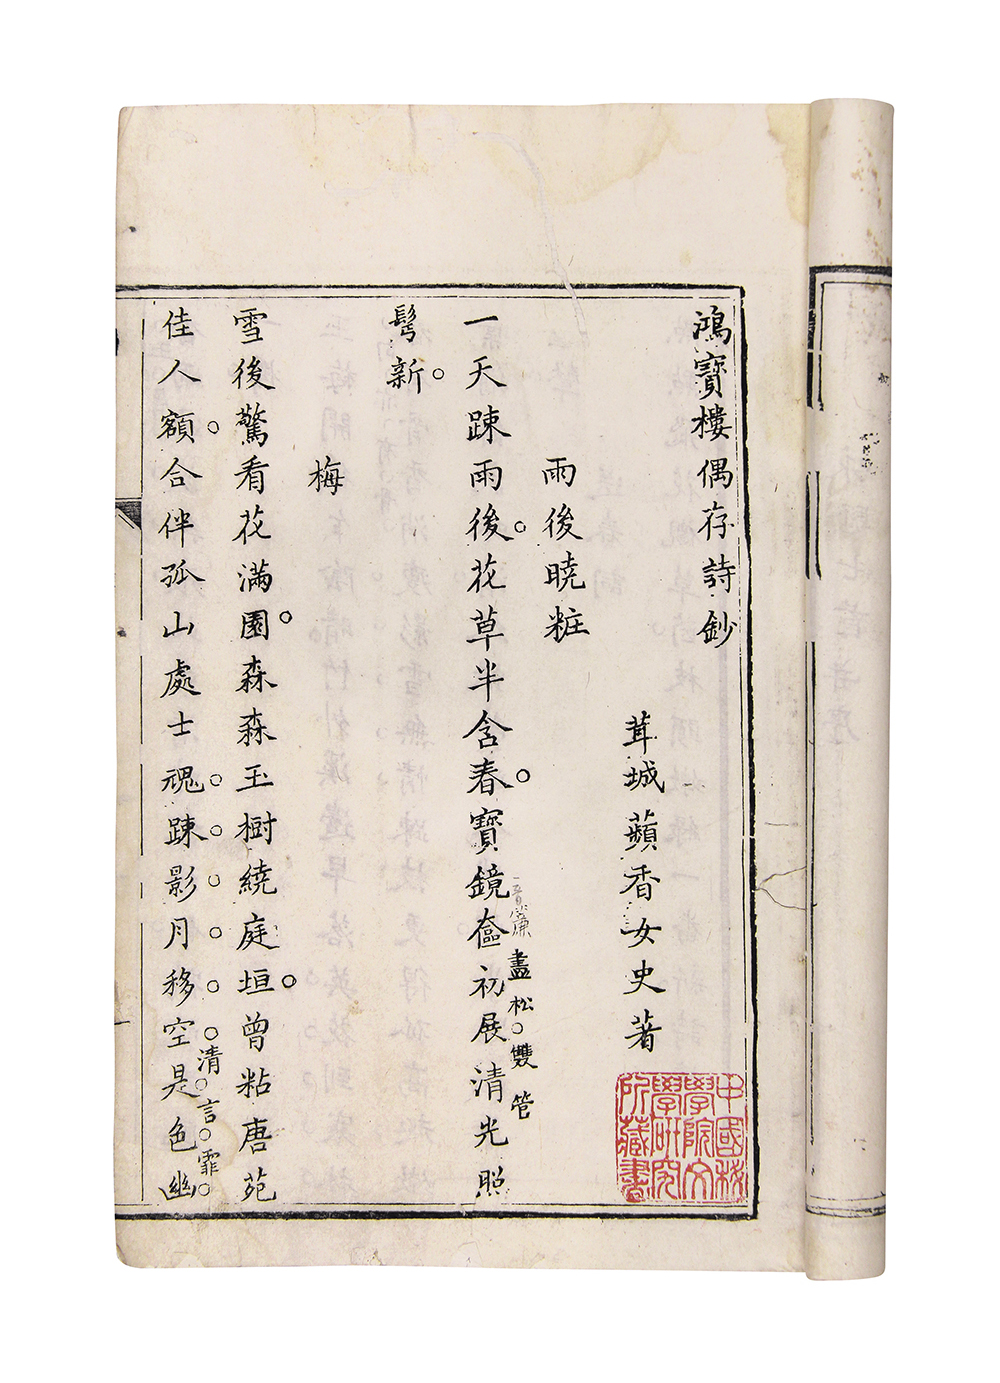 鴻寳樓偶存詩鈔
茸城蘋香女史著
雨後曉粧
一天踈雨後花草半含春寳鏡奩初展清光照
晋簾畫松雙管
鬂新
梅
雪後驚看花滿園森森玉樹繞庭垣曾粘唐苑
佳人額合伴孤山處士魂踈影月移空是色幽
清言霏
中國科
學院文
學研究
所藏書